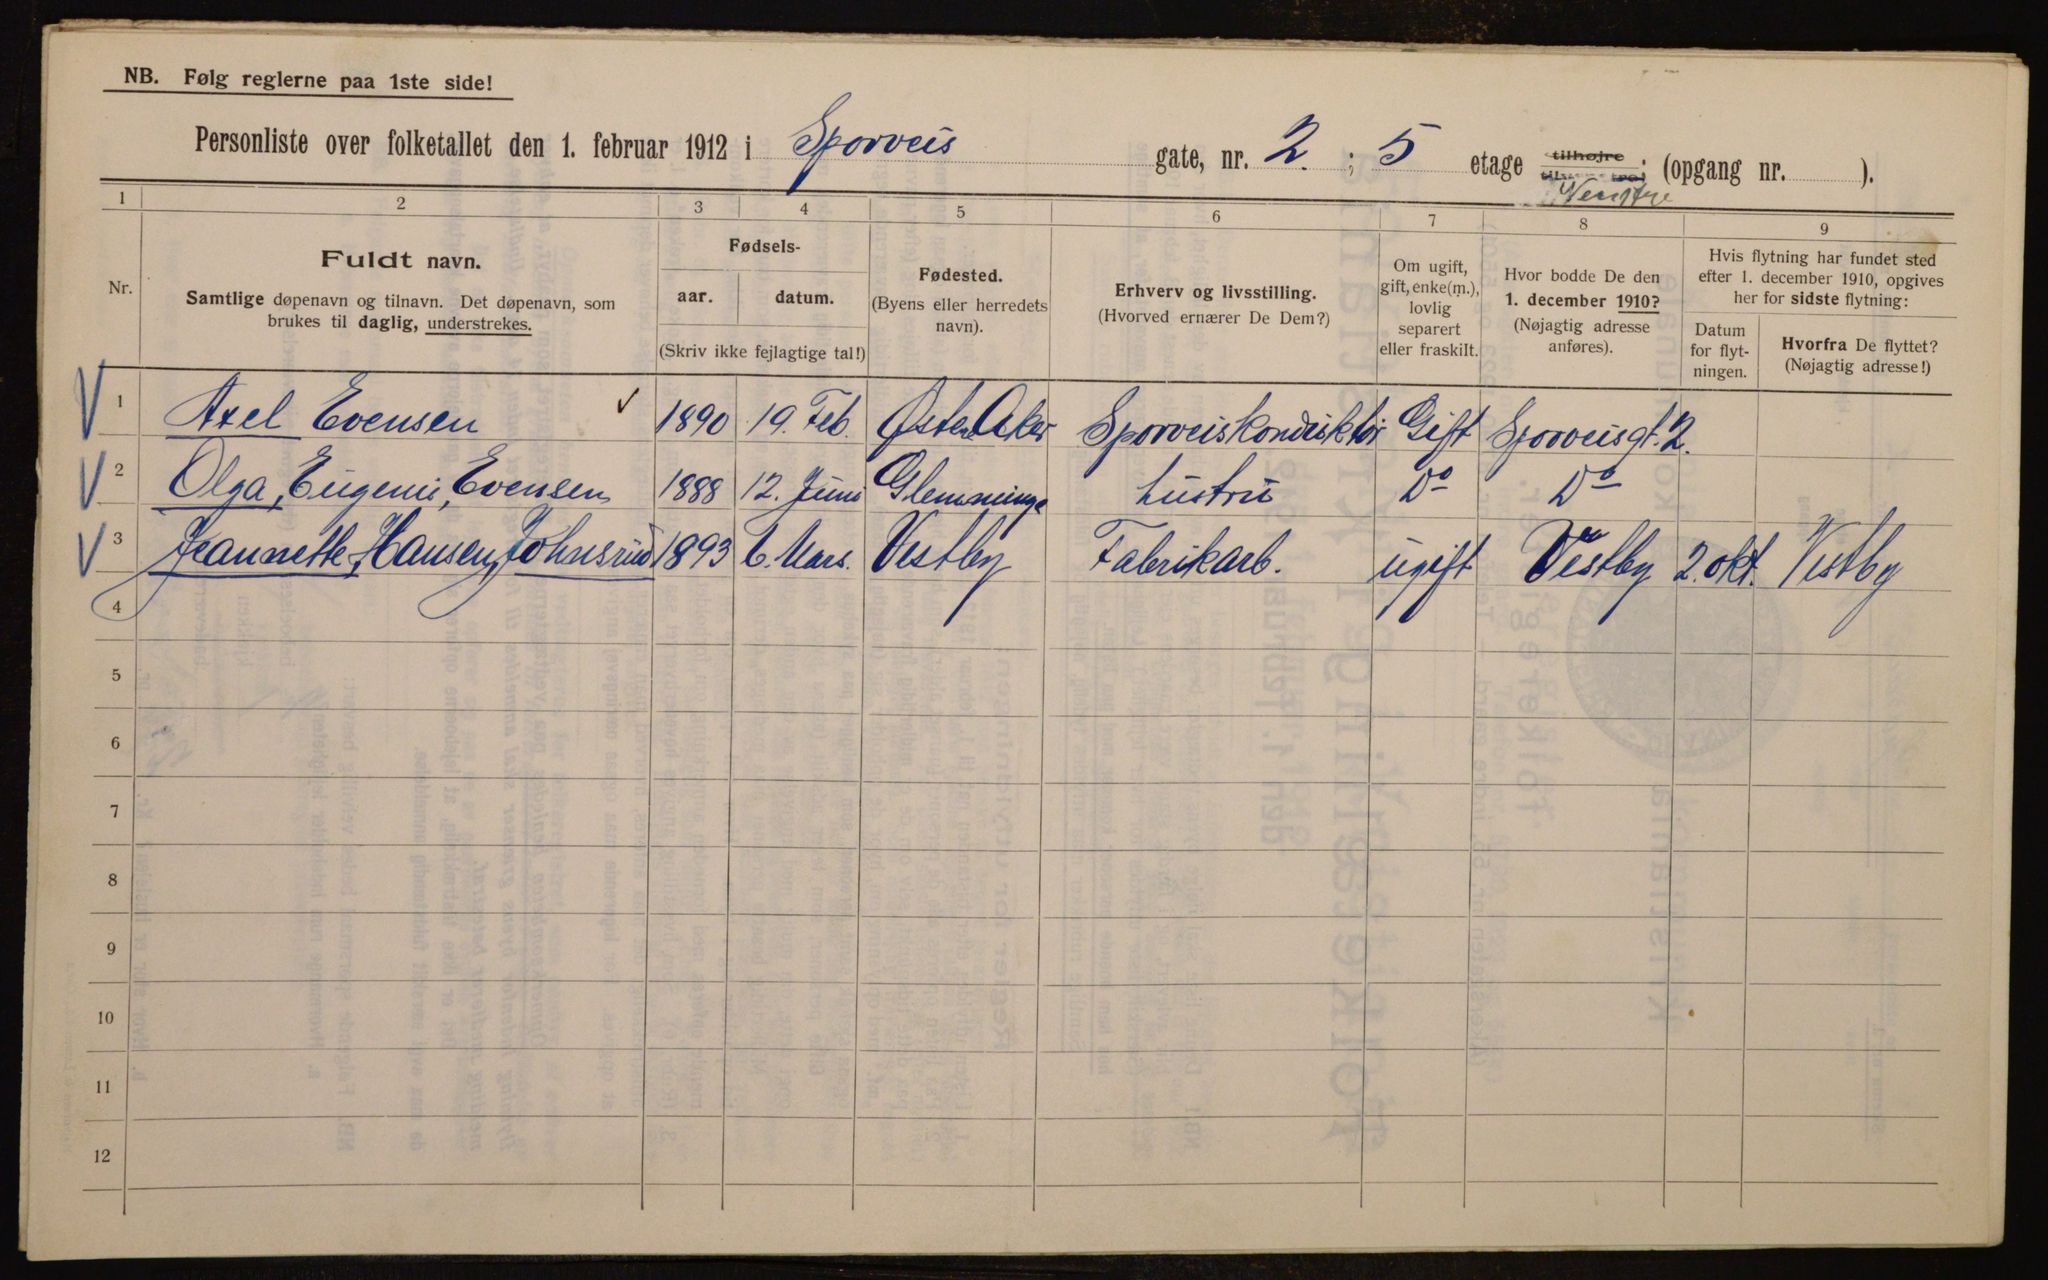 NB. Følg reglerne paa 1ste side!
Personliste over folketallet den 1. februar 1912 i Sporveis gate, nr. 2 ; 5 etage tilhøjre (opgang nr. ).
Venstre
1 2 3 4 5 6 7 8 9
Nr.
Fuldt navn.
Samtlige døpenavn og tilnavn. Det døpenavn, som
brukes til daglig, understrekes.
Fødsels-
aar. datum.
(Skriv ikke fejlagtige tal!)
Fødested.
(Byens eller herredets
navn).
Erhverv og livsstilling.
(Hvorved ernærer De Dem?)
Om ugift,
gift, enke(m.),
lovlig
separert
eller fraskilt.
Hvor bodde De den
1. december 1910?
(Nøjagtig adresse
anføres).
Hvis flytning har fundet sted
efter 1. december 1910, opgives
her for sidste flytning:
Datum
for flyt-
ningen.
Hvorfra De flyttet?
(Nøjagtig adresse!)
1 Axel Evensen 1890 19. Feb. Østre Aker Sporveiskonduktør Gift Sporveisgt. 2.
2 Olga, Eugenie, Evensen 1888 12. Juni Glemminge Hustru Do Do
3 Jeannette, Hansen, Johnsrud 1893 6. Mars. Vestby Fabrikarb. ugift Vestby 2. okt. Vestby
4
5
6
7
8
9
10
11
12